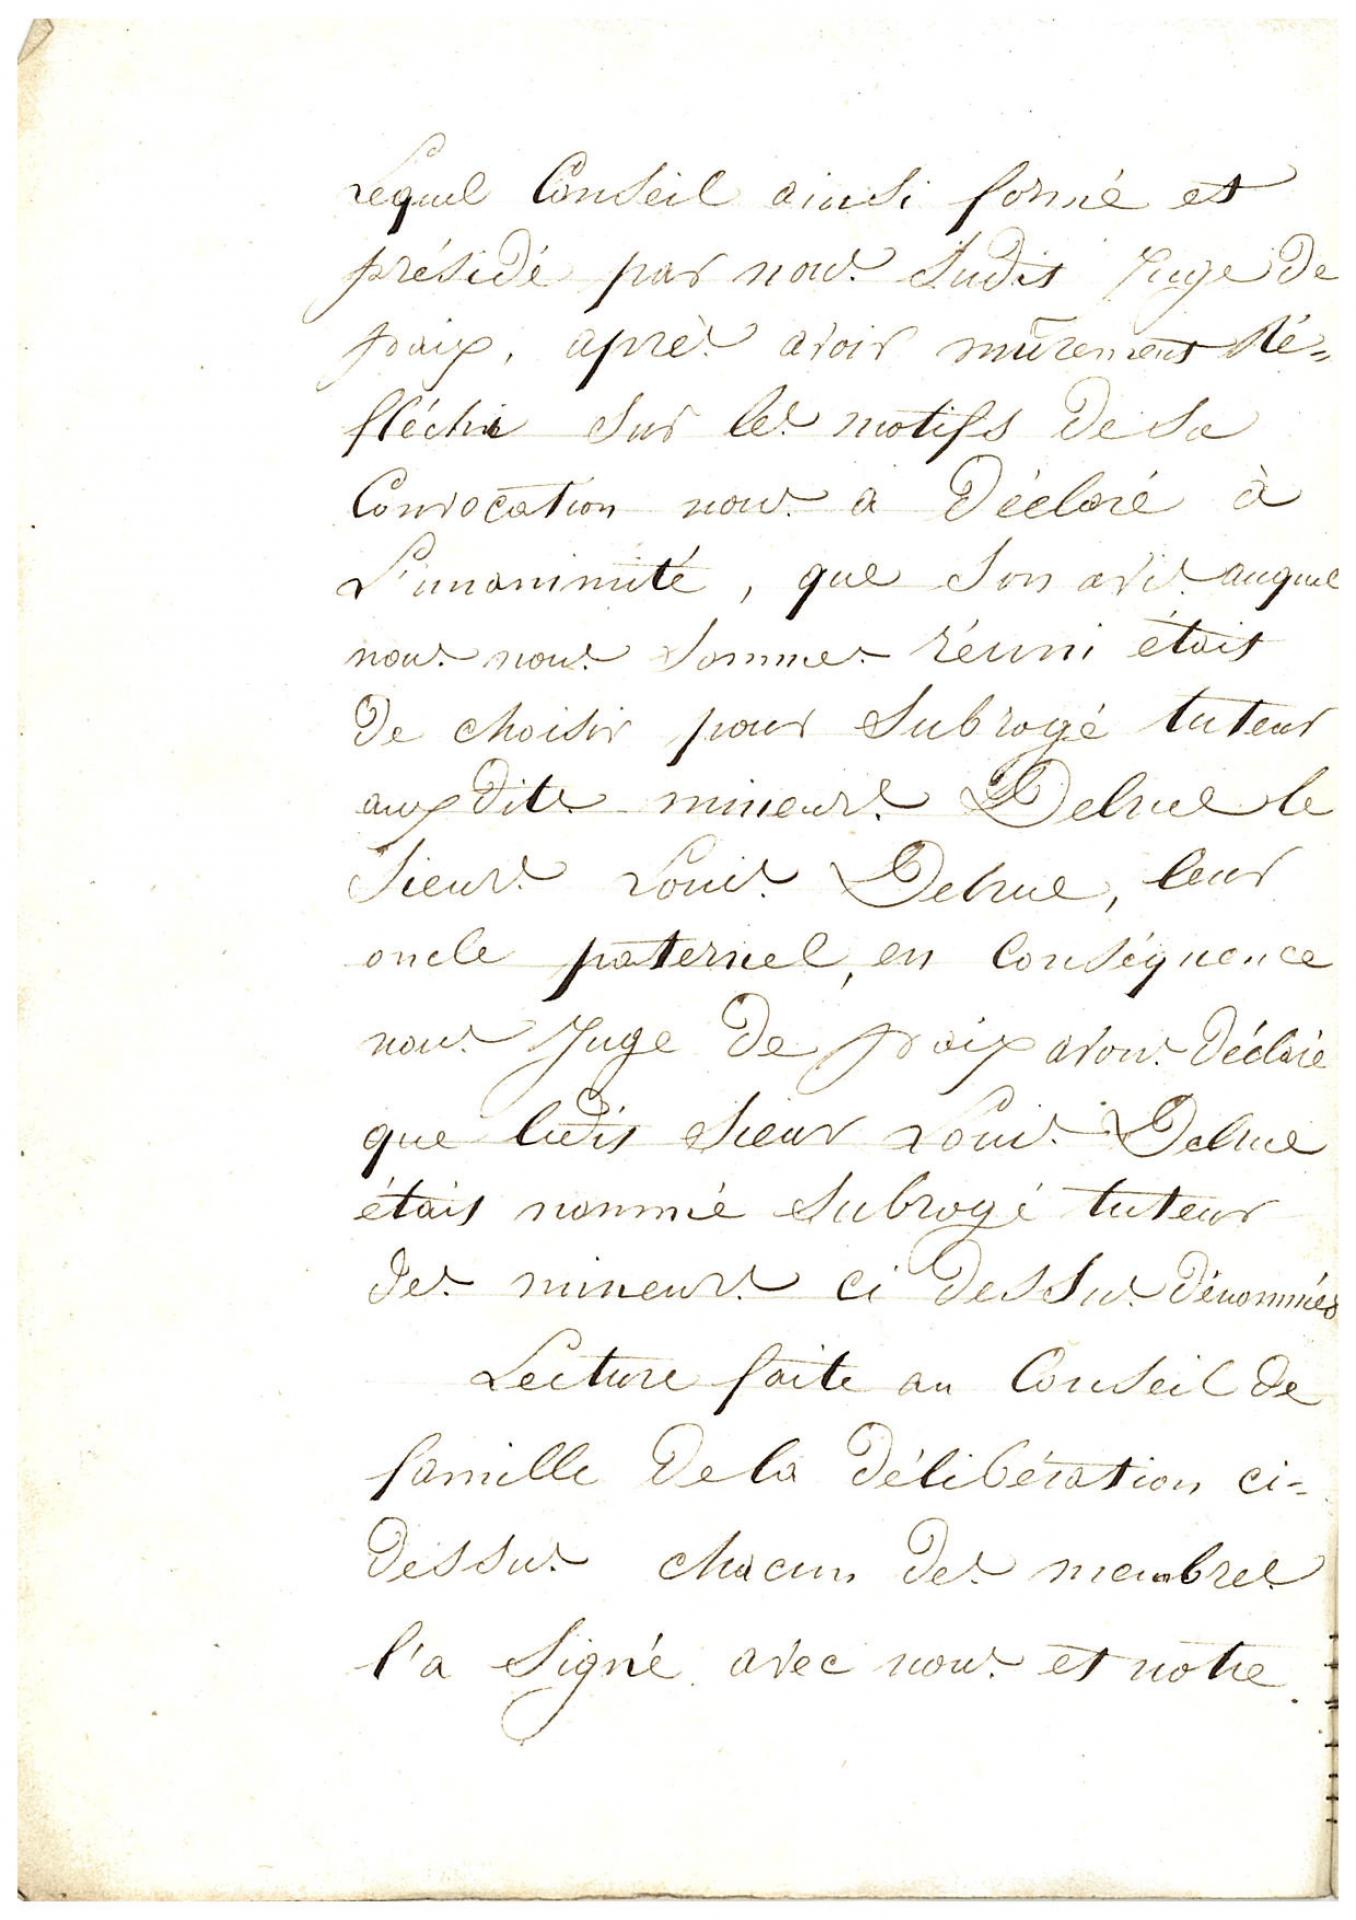 Lequel Conseil ainsi formé et
présidé par nous Sudit Juge de
paix, après avoir mûrement Ré=
fléchi sur les motifs de sa
Convocation nous a Déclaré à
L'unanimité, que son avis auquel
nous nous sommes réuni était
de choisir pour Subrogé tuteur
auxdits mineurs Delrue le
Sieur Louis Delrue, leur
oncle paternel, en Conséquence
nous Juge de paix avons Déclaré
que ledit Sieur Louis Delrue
était nommé Subrogé tuteur
des mineurs ci dessus dénommés
Lecture faite au Conseil de
famille de la délibération ci=
dessus chacun des membres
l'a Signé avec nous et notre